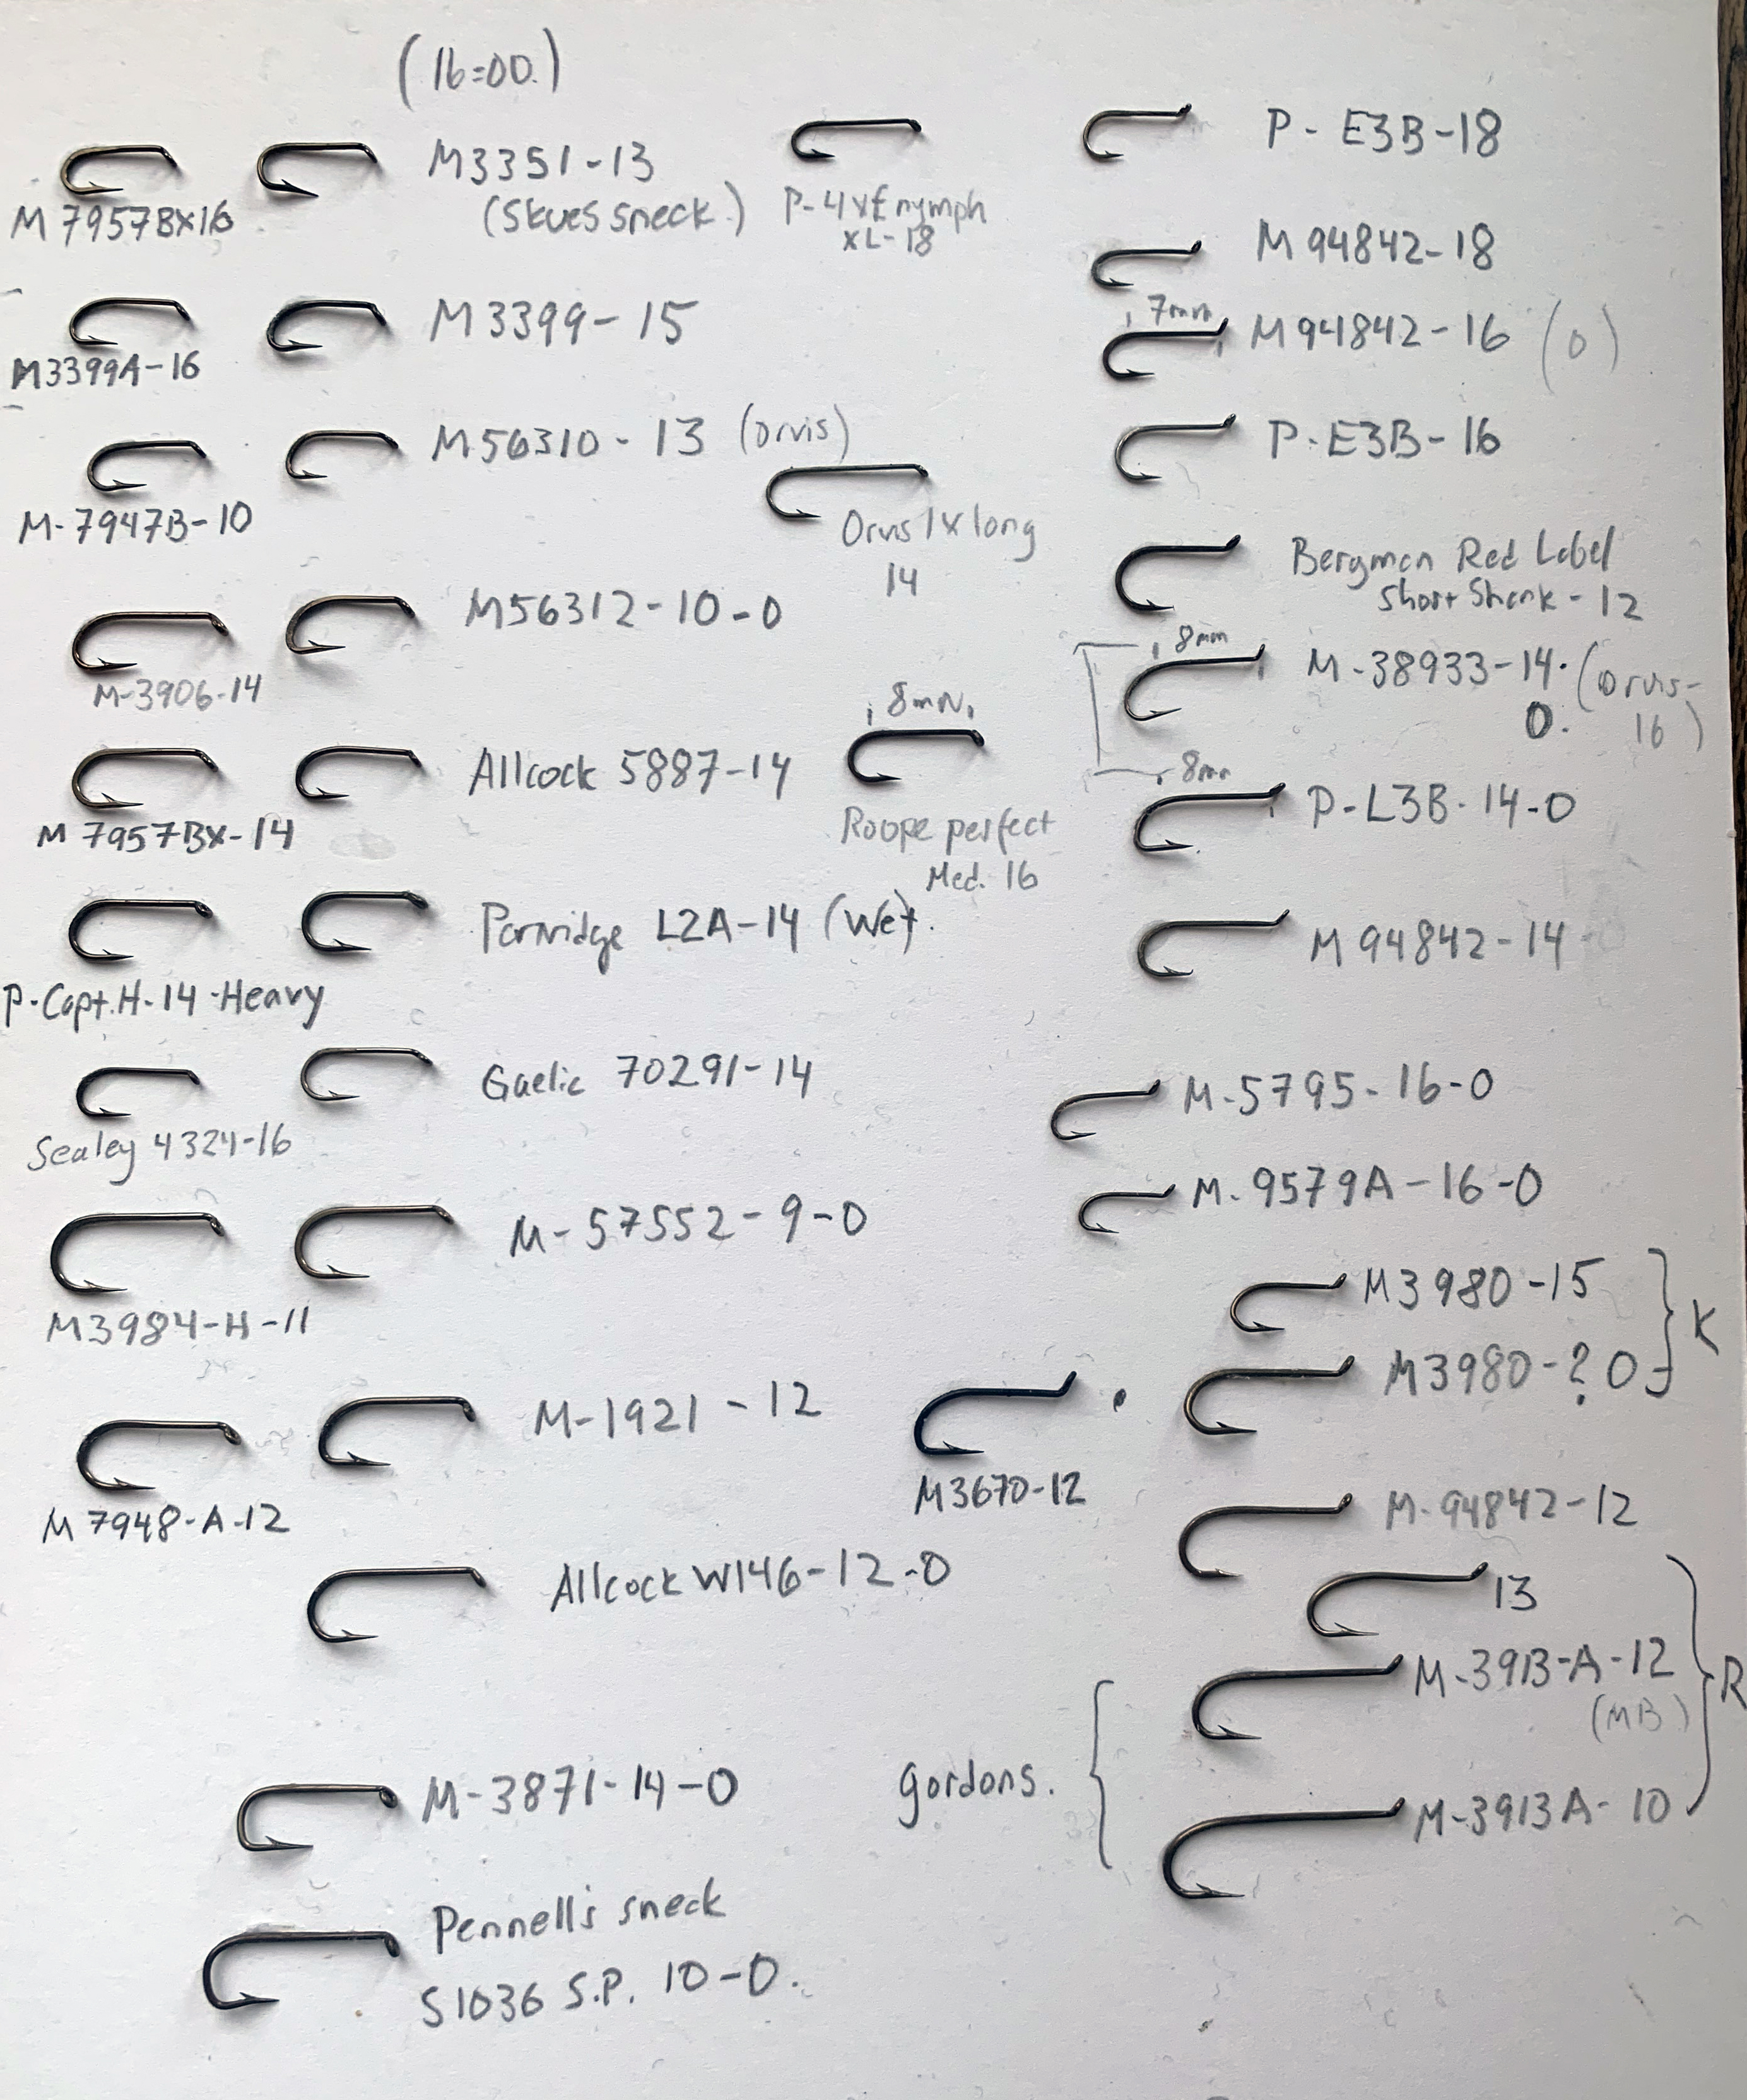 (16=00.)
M 7957BX16
M3351-13
(Skues sneck.)
P-4xf nymph
XL-18
P- E3B-18
M 94842-18
M3399A-16
M3399-15
7mm
M94842-16 (0)
M-7947B-10
M56310-13 (orvis)
Orvis 1x long
14
P-E3B-16
Bergman Red Label
Short Shank - 12
M-3906-14
M56312-10-0
8mm
M-38933-14. (orvis-
0. 16)
M 7957BX-14
Allcock 5887-14
8mm
Roope perfect
Med. 16
8mm
P-L3B-14-0
P-Capt. H-14-Heavy
Partridge L2A-14 (Wet).
M94842-14
Sealey 4324-16
Gaelic 70291-14
M-5795-16-0
M-9579A-16-0
M3984-H-11
M-57552-9-0
M3980-15
M3980-? 0
K
M 7948-A-12
M-1921-12
M3670-12
M-94842-12
Allcock W146-12-0
13
M-3913-A-12
(MB)
R
M-3871-14-0
gordons.
M-3913A-10
Pennell's sneck
S1036 S.P. 10-0.